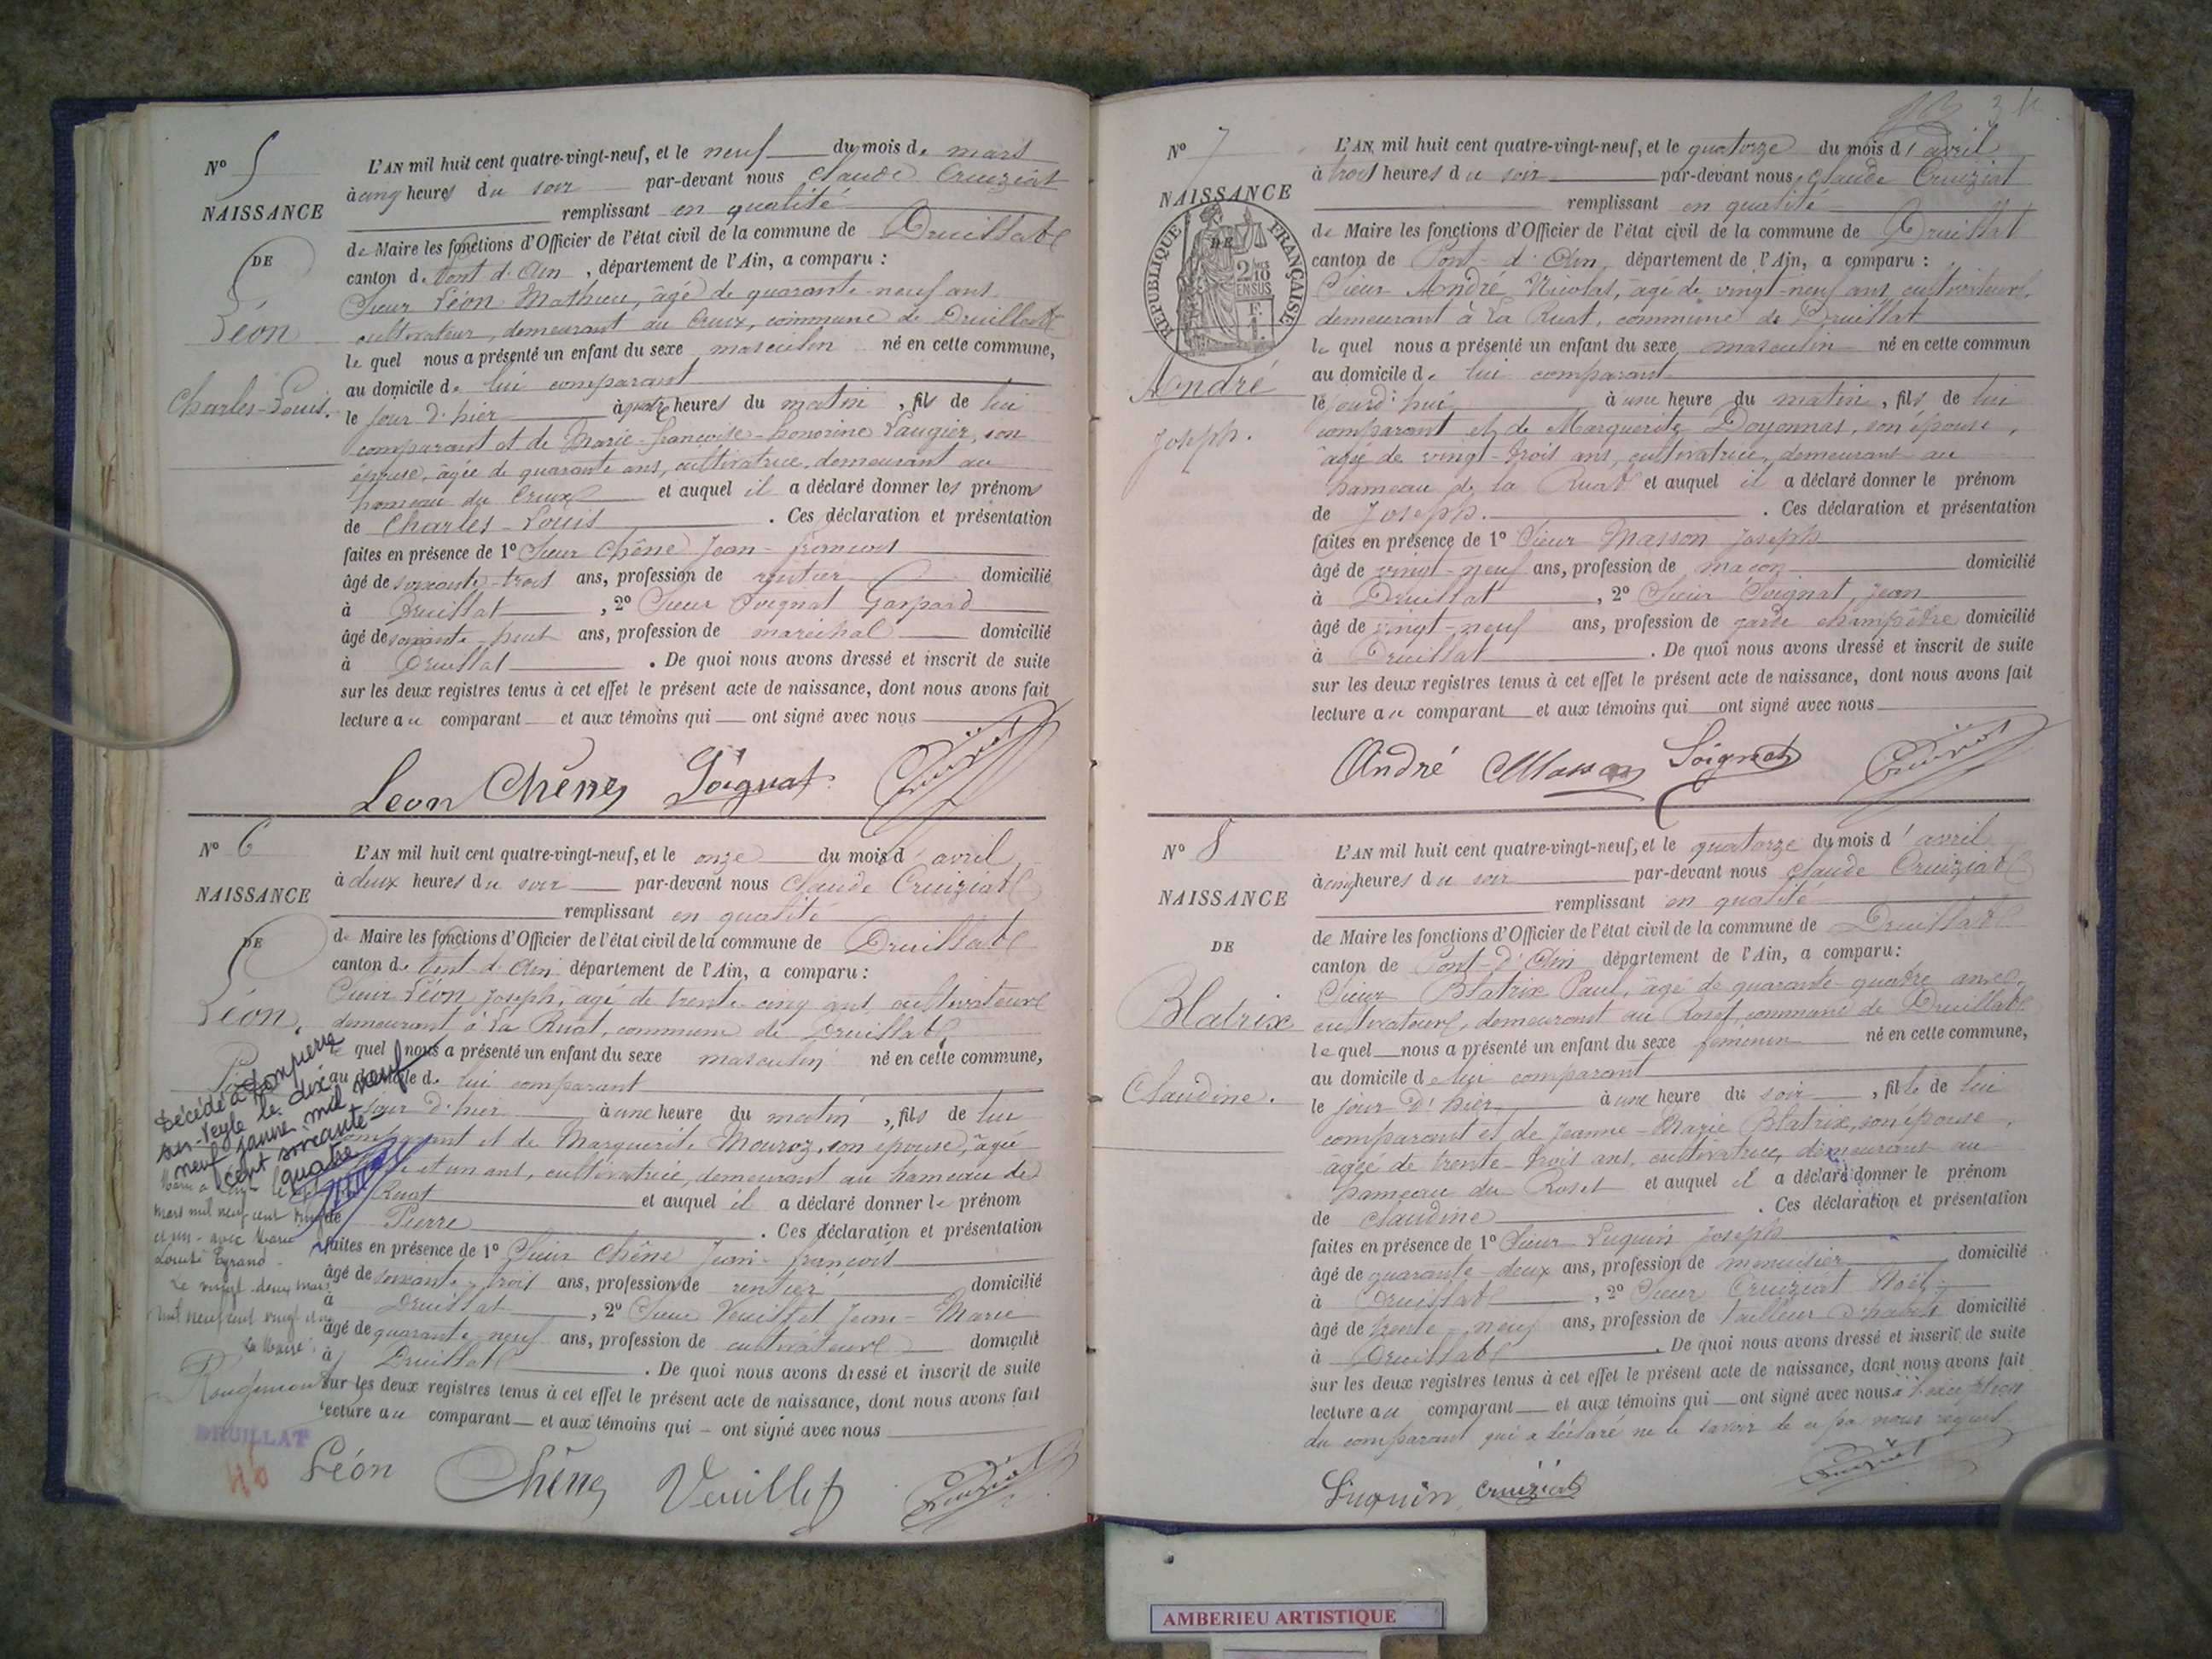 Nº 5
NAISSANCE
DE
Léon
Charles-Louis.
L'AN mil huit cent quatre-vingt-neuf, et le neuf du mois de mars
à cinq heures du soir par-devant nous Claude Cruiziat
remplissant en qualité
de Maire les fonctions d'Officier de l'état civil de la commune de Druillat
canton de Pont d'Ain, département de l'Ain, a comparu :
Sieur Léon Mathieu, âgé de quarante-neuf ans
cultivateur, demeurant au Creux, commune de Druillat
le quel nous a présenté un enfant du sexe masculin né en cette commune,
au domicile de lui comparant
le jour d'hier à quatre heures du matin, fils de lui
comparant et de Marie-Françoise-Honorine Laugier, son
épouse, âgée de quarante ans, cultivatrice, demeurant au
hameau du Creux et auquel il a déclaré donner les prénoms
de Charles-Louis. Ces déclaration et présentation
faites en présence de 1º Sieur Chêne Jean-François
âgé de soixante-trois ans, profession de rentier domicilié
à Druillat, 2º Sieur Poignat Gaspard
âgé de soixante-huit ans, profession de maréchal domicilié
à Druillat. De quoi nous avons dressé et inscrit de suite
sur les deux registres tenus à cet effet le présent acte de naissance, dont nous avons fait
lecture au comparant et aux témoins qui ont signé avec nous
Leon Chêne Poignat Cruiziat
Nº 6
NAISSANCE
DE
Léon,
Décédé à Dompierre
sur-Veyle le dix
neuf janvier mil neuf
cent soixante-
quatre
mars mil neuf cent vingt
et un - avec Marie
Louise
Le vingt-deux mars
mil neuf cent vingt et un
Le Maire :
Rougemont
DRUILLAT
L'AN mil huit cent quatre-vingt-neuf, et le onze du mois d'avril
à deux heures du soir par-devant nous Claude Cruiziat
remplissant en qualité
de Maire les fonctions d'Officier de l'état civil de la commune de Druillat
canton de Pont-d'Ain département de l'Ain, a comparu :
Sieur Léon Joseph, âgé de trente-cinq ans, cultivateur
demeurant à La Ruat, commune de Druillat
le quel nous a présenté un enfant du sexe masculin né en cette commune,
au domicile de lui comparant
jour d'hier à une heure du matin, fils de lui
comparant et de Marguerite Mouroz, son épouse, âgée
et un ans, cultivatrice, demeurant au hameau de
Ruat et auquel il a déclaré donner le prénom
de Pierre. Ces déclaration et présentation
faites en présence de 1º Sieur Chêne Jean-François
âgé de soixante-trois ans, profession de rentier domicilié
à Druillat, 2º Sieur Veuillet Jean-Marie
âgé de quarante-neuf ans, profession de cultivateur domicilié
à Druillat. De quoi nous avons dressé et inscrit de suite
sur les deux registres tenus à cet effet le présent acte de naissance, dont nous avons fait
lecture au comparant et aux témoins qui ont signé avec nous
Léon Chêne Veuillet Cruiziat
Nº 7
NAISSANCE
DE
RÉPUBLIQUE FRANÇAISE
André
Joseph.
L'AN mil huit cent quatre-vingt-neuf, et le quatorze du mois d'avril
à trois heures du soir par-devant nous, Claude Cruiziat
remplissant en qualité
de Maire les fonctions d'Officier de l'état civil de la commune de Druillat
canton de Pont-d'Ain, département de l'Ain, a comparu :
Sieur André Nicolas, âgé de vingt-neuf ans, cultivateur,
demeurant à La Ruat, commune de Druillat
le quel nous a présenté un enfant du sexe masculin né en cette commun
au domicile de lui comparant
le jourd'hui à une heure du matin, fils de lui
comparant et de Marguerite Doyonnas, son épouse,
âgée de vingt-trois ans, cultivatrice, demeurant au
hameau de la Ruat et auquel il a déclaré donner le prénom
de Joseph. Ces déclaration et présentation
faites en présence de 1º Sieur Masson Joseph
âgé de vingt-neuf ans, profession de maçon domicilié
à Druillat, 2º Sieur Poignat, Jean
âgé de vingt-neuf ans, profession de garde champêtre domicilié
à Druillat. De quoi nous avons dressé et inscrit de suite
sur les deux registres tenus à cet effet le présent acte de naissance, dont nous avons fait
lecture au comparant et aux témoins qui ont signé avec nous
André Masson Poignat Cruiziat
Nº 8
NAISSANCE
DE
Blatrix
Claudine.
L'AN mil huit cent quatre-vingt-neuf, et le quatorze du mois d'avril
à cinq heures du soir par-devant nous Claude Cruiziat
remplissant en qualité
de Maire les fonctions d'Officier de l'état civil de la commune de Druillat
canton de Pont-d'Ain département de l'Ain, a comparu :
Sieur Blatrix Paul, âgé de quarante-quatre ans,
cultivateur, demeurant au Roset commune de Druillat
le quel nous a présenté un enfant du sexe féminin né en cette commune,
au domicile de lui comparant
le jour d'hier à une heure du soir, fille de lui
comparant et de Jeanne-Marie Blatrix, son épouse,
âgée de trente-trois ans, cultivatrice, demeurant au
hameau du Roset et auquel il a déclaré donner le prénom
de Claudine. Ces déclaration et présentation
faites en présence de 1º Sieur Luquin Joseph
âgé de quarante-deux ans, profession de menuisier domicilié
à Druillat, 2º Sieur Cruiziat Noël
âgé de trente-neuf ans, profession de tailleur d'habits domicilié
à Druillat. De quoi nous avons dressé et inscrit de suite
sur les deux registres tenus à cet effet le présent acte de naissance, dont nous avons fait
lecture au comparant et aux témoins qui ont signé avec nous à l'exception
du comparant qui a déclaré ne le savoir de ce par nous requis
Luquin Cruiziat Cruiziat
AMBERIEU ARTISTIQUE